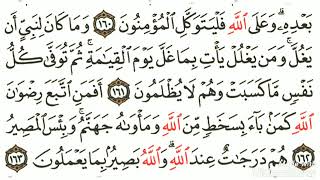 بَعْدِهِۦ ۗ وَعَلَى ٱللَّهِ فَلْيَتَوَكَّلِ ٱلْمُؤْمِنُونَ ١٦٠ وَمَا كَانَ لِنَبِىٍّ أَن
يَغُلَّ ۚ وَمَن يَغْلُلْ يَأْتِ بِمَا غَلَّ يَوْمَ ٱلْقِيَـٰمَةِ ۚ ثُمَّ تُوَفَّىٰ كُلُّ
نَفْسٍ مَّا كَسَبَتْ وَهُمْ لَا يُظْلَمُونَ ١٦١ أَفَمَنِ ٱتَّبَعَ رِضْوَٰنَ
ٱللَّهِ كَمَنۢ بَآءَ بِسَخَطٍ مِّنَ ٱللَّهِ وَمَأْوَىٰهُ جَهَنَّمُ ۚ وَبِئْسَ ٱلْمَصِيرُ
١٦٢ هُمْ دَرَجَـٰتٌ عِندَ ٱللَّهِ ۗ وَٱللَّهُ بَصِيرٌۢ بِمَا يَعْمَلُونَ ١٦٣